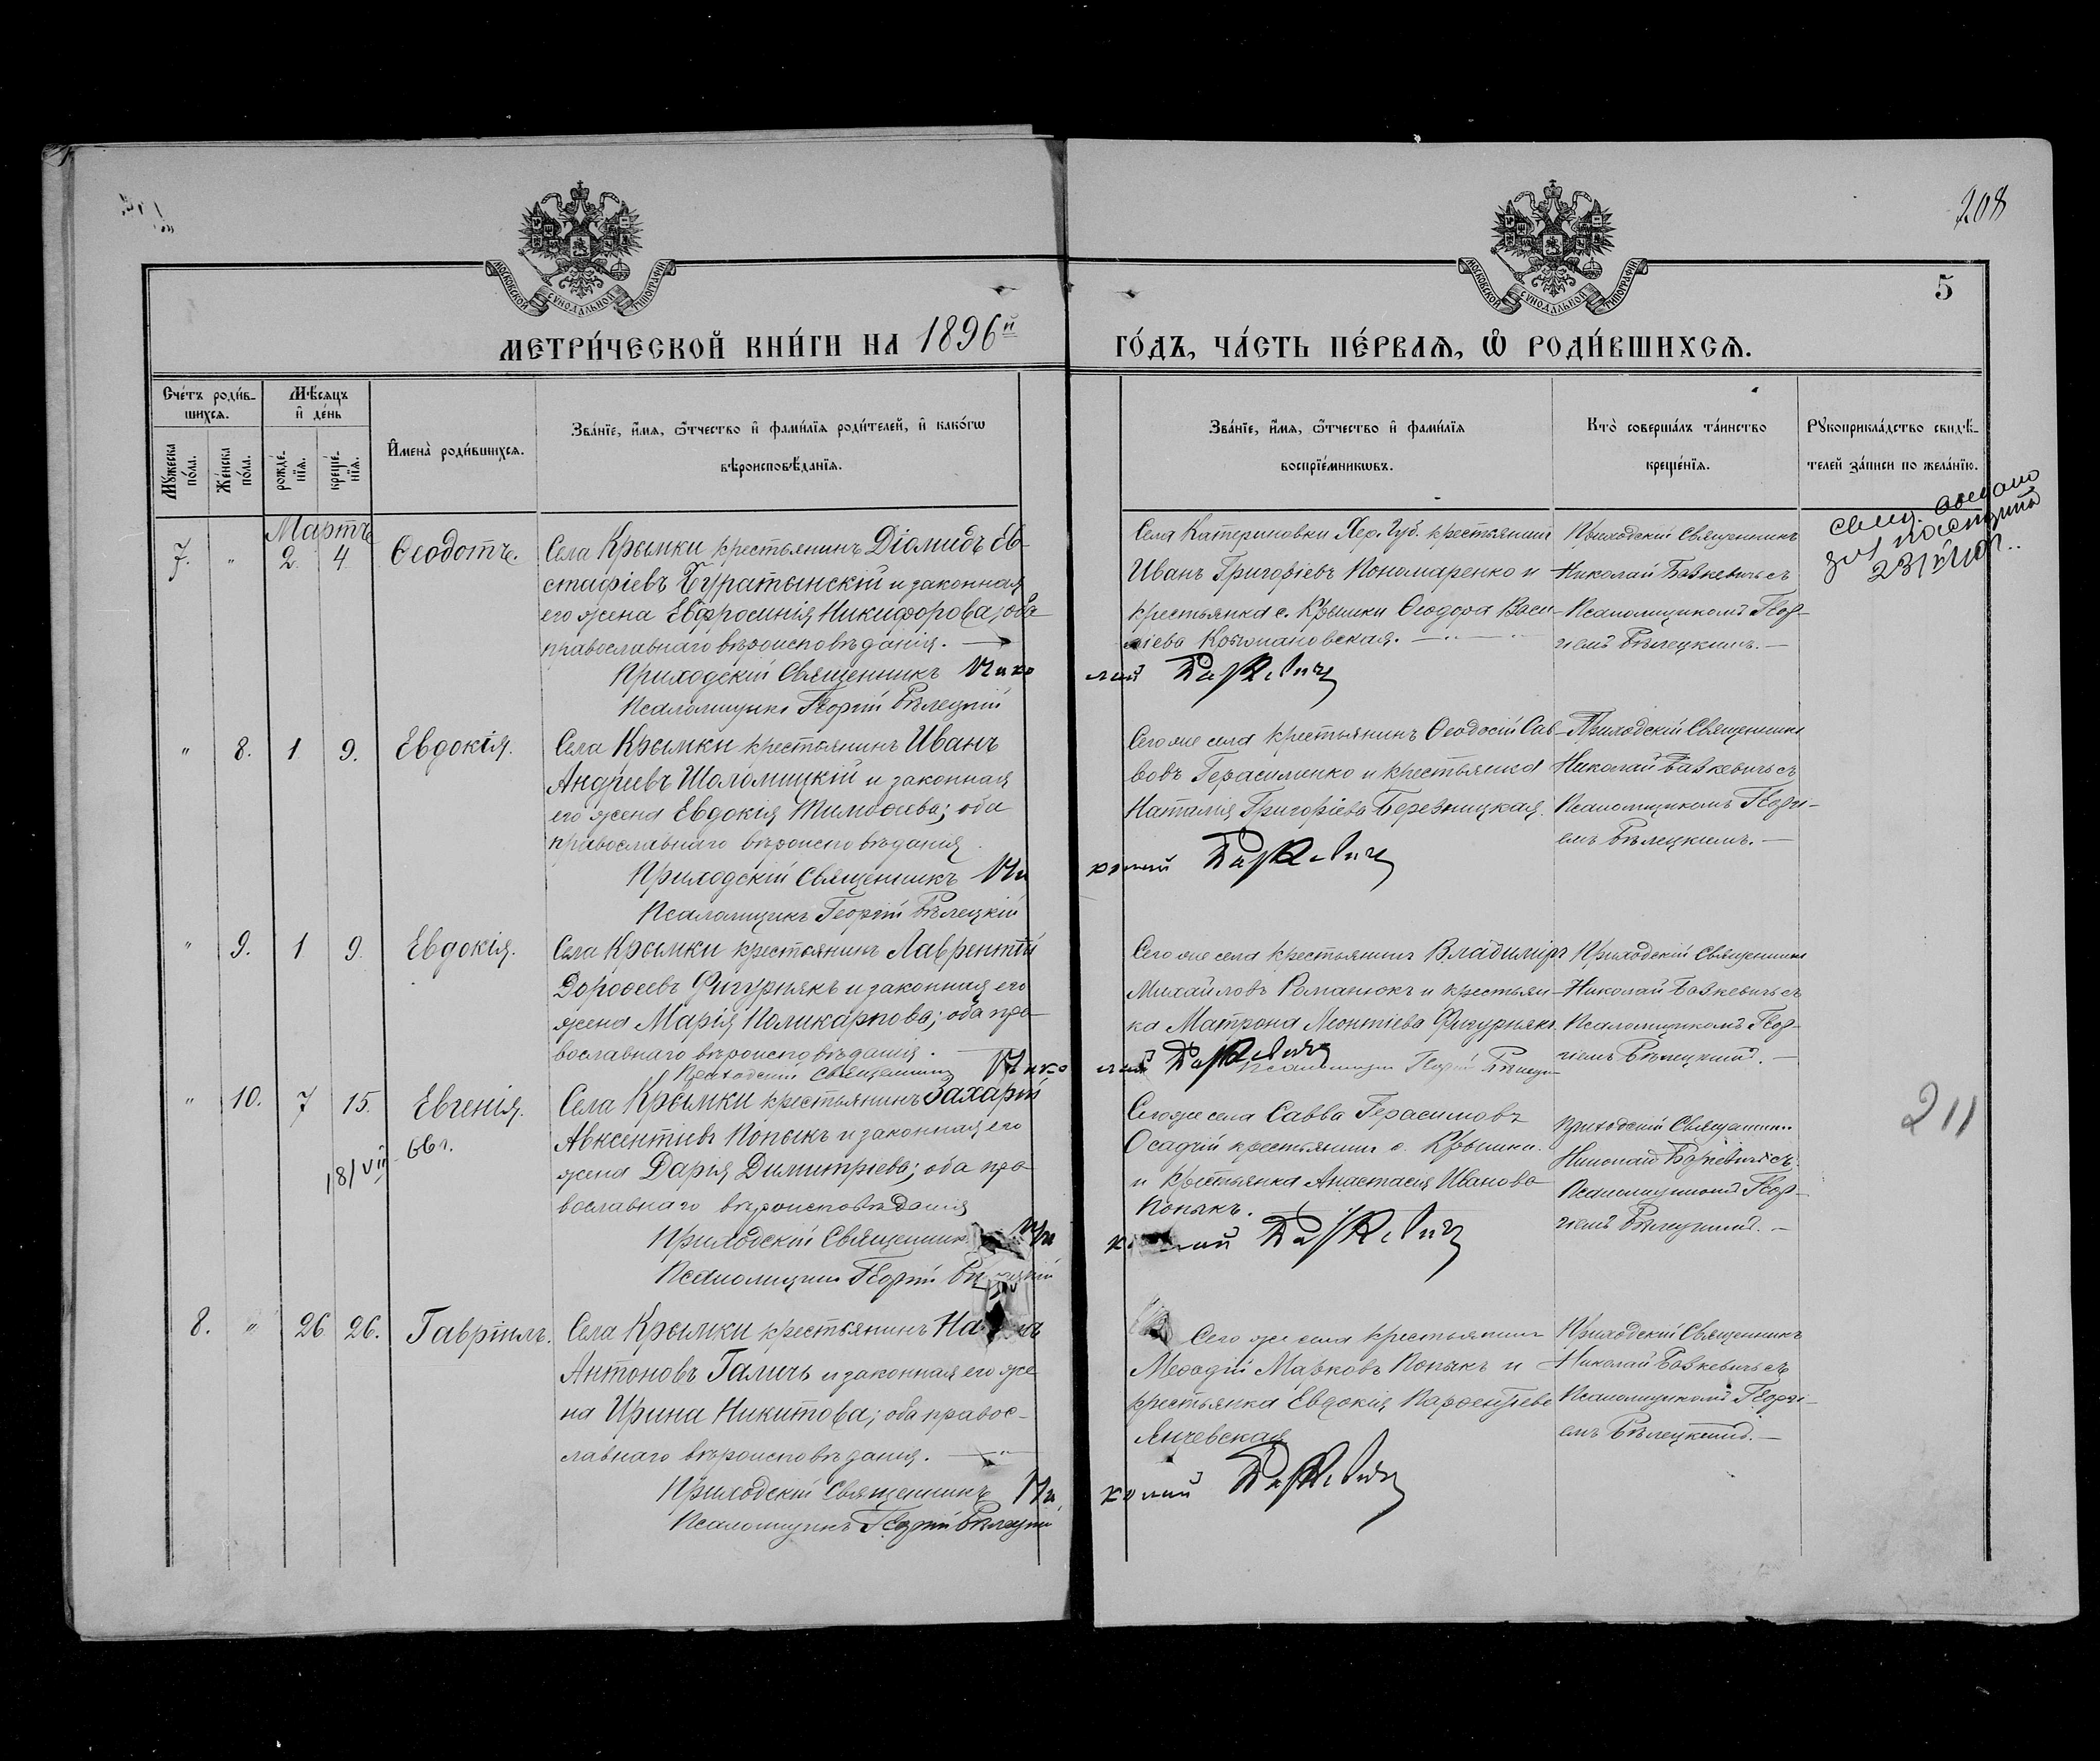 208
МОСКОВСКОЙ СУНОДАЛЬНОЙ ТИПОГРАФІИ
МОСКОВСКОЙ СУНОДАЛЬНОЙ ТИПОГРАФІИ
5
МЕТРИ́ЧЕСКОЙ КНИ́ГИ НА 1896й
ГО́ДЪ, ЧА́СТЬ ПЕ́РВАѦ, Ѡ҆ РОДИ́ВШИХСѦ.
Сче́тъ роди́в-
шихсѧ.
Мꙋжеска по́ла.
Же́нска по́ла.
Мѣ́сѧцъ
и҆ де́нь
рожде́-
нїѧ.
креще́-
нїѧ.
И҆мена̀ роди́вшихсѧ.
Зва́нїе, и҆́мѧ, ѻ҆́тчество и҆ фами́лїѧ роди́телей, и҆ како́гѡ
вѣроисповѣ́данїѧ.
Зва́нїе, и҆́мѧ, ѻ҆́тчество и҆ фами́лїѧ
воспрїе́мникѡвъ.
Кто̀ соверша́лъ та́инство
креще́нїѧ.
Рꙋкоприкла́дство свидѣ́-
телей за́писи по жела́нїю.
Мартъ
7. " 2 4 Ѳеодотъ.
Села Крымки крестьянинъ Діомидъ Ев-
стафіевъ Буратынскій и законная
его жена Евфросинія Никифорова, оба
православнаго вѣроисповѣданія.
Приходскій Священникъ Нико
лай Базкевичъ
Псаломщикъ Георгій Бѣлецкій
Села Катериновки Хер. Губ. крестьянинъ
Иванъ Григоріевъ Пономаренко и
крестьянка с. Крымки Ѳеодора Васи-
ліева
Приходскій Священникъ
Николай Базкевичъ съ
Псаломщикомъ Геор-
гіемъ Бѣлецкимъ.
" 8. 1 9. Евдокія.
Села Крымки крестьянинъ Иванъ
Андреевъ Шоломицкій и законная
его жена Евдокія Тимоѳеева; оба
православнаго вѣроисповѣданія.
Приходскій Священникъ Ни
колай Базкевичъ
Псаломщикъ Георгій Бѣлецкій
Сего же села крестьянинъ Ѳеодосій Сав-
вовъ Герасименко и крестьянка
Наталія Григоріева Березницкая.
Приходскій Священникъ
Николай Базкевичъ съ
Псаломщикомъ Георгі-
емъ Бѣлецкимъ.
" 9. 1 9 Евдокія.
Села Крымки крестьянинъ Лаврентій
Дороѳеевъ Фигурнякъ и законная его
жена Марія Поликарпова; оба пра-
вославнаго вѣроисповѣданія.
Приходскій Священникъ Нико
лай Базкевичъ
Псаломщикъ Георгій Бѣлецкій
Сего же села крестьянинъ Владиміръ
Михайловъ Романюкъ и крестьян-
ка Матрона Леонтіева Фигурнякъ
Приходскій Священникъ
Николай Базкевичъ съ
Псаломщикомъ Геор-
гіемъ Бѣлецкимъ.
" 10. 7 15. Евгенія.
18/VII 66 г.
Села Крымки крестьянинъ Захарій
Авксентіевъ Попыкъ и законная его
жена Дарія Димитріева; оба пра
вославнаго вѣроисповѣданія
Приходскій Священникъ Ни
колай Базкевичъ
Псаломщикъ Георгій Бѣлецкій
Сего же села Савва Герасимовъ
Осадчій крестьянинъ с. Крымки.
и крестьянка Анастасія Иванова
Попыкъ.
Приходскій Священникъ
Николай Базкевичъ съ
Псаломщикомъ Геор-
гіемъ Бѣлецкимъ.
211
8. " 26 26. Гавріилъ.
Села Крымки крестьянинъ
Антоновъ Галичъ и законная его же
на Ирина Никитова; оба правос-
лавнаго вѣроисповѣданія.
Приходскій Священникъ Ни
колай Базкевичъ
Псаломщикъ Георгій Бѣлецкій
Сего же села крестьянинъ
Меѳодій Марковъ Попыкъ и
крестьянка Евдокія Парѳентіева
Янчевская
Приходскій Священникъ
Николай Базкевичъ съ
Псаломщикомъ Георгі-
емъ Бѣлецкимъ.